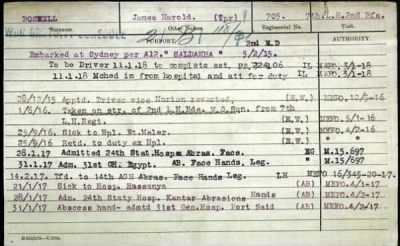 BOSWELL James Harold. (Tpr) 795. 7th L.H.2nd Rfs.
Surname. Regimental No. Unit.
REPORT. AUTHORITY.
2nd M.D
Embarked at Sydney per A12." SALDAKHA " 5/2/15.
To be Driver 11.1.18 to complete est. IL MEFO. 3/1-18
11.1.18 Mched in from hospital and att for duty IL MEFO. 3/1-18
28/12/15 Apptd. Driver vice Morton reverted, (E.W.) MEFO. 12/5-16
1/8/16 Taken on str. of 2nd L.H.Bde. M.G.Sqn. from 7th
L.H.Regt. (E.W.) MEFO. 5/1-16
23/9/16 Sick to Hpl. Et.Maler. (E.W.) MEFO. 4/2-16
25/9/16 Retd. to duty ex Hpl. (E.W.) "
28.1.17 Admitted 24th Stat.Hosp Abras. Face. EG M.15/697
31.1.17 Adm. 31st GH. Egypt. AB. Face Hands, Leg. " M.15/697
14.2.17. Tfd. to 14th AGH Abras. Face Hands Leg. LH MEFO 16/345-20-17.
21/1/17 Sick to Hosp. Hassanya (AB) MEFO. 4/1-17
28/1/17 Adm. 24th Staty Hosp. Kantar Abrasions Hands (AB) MEFO. 4/2-17
31/1/17 Abscess hand- admtd 31st Gen.Hosp. Port Said (AB) MEFO. 4/2-17